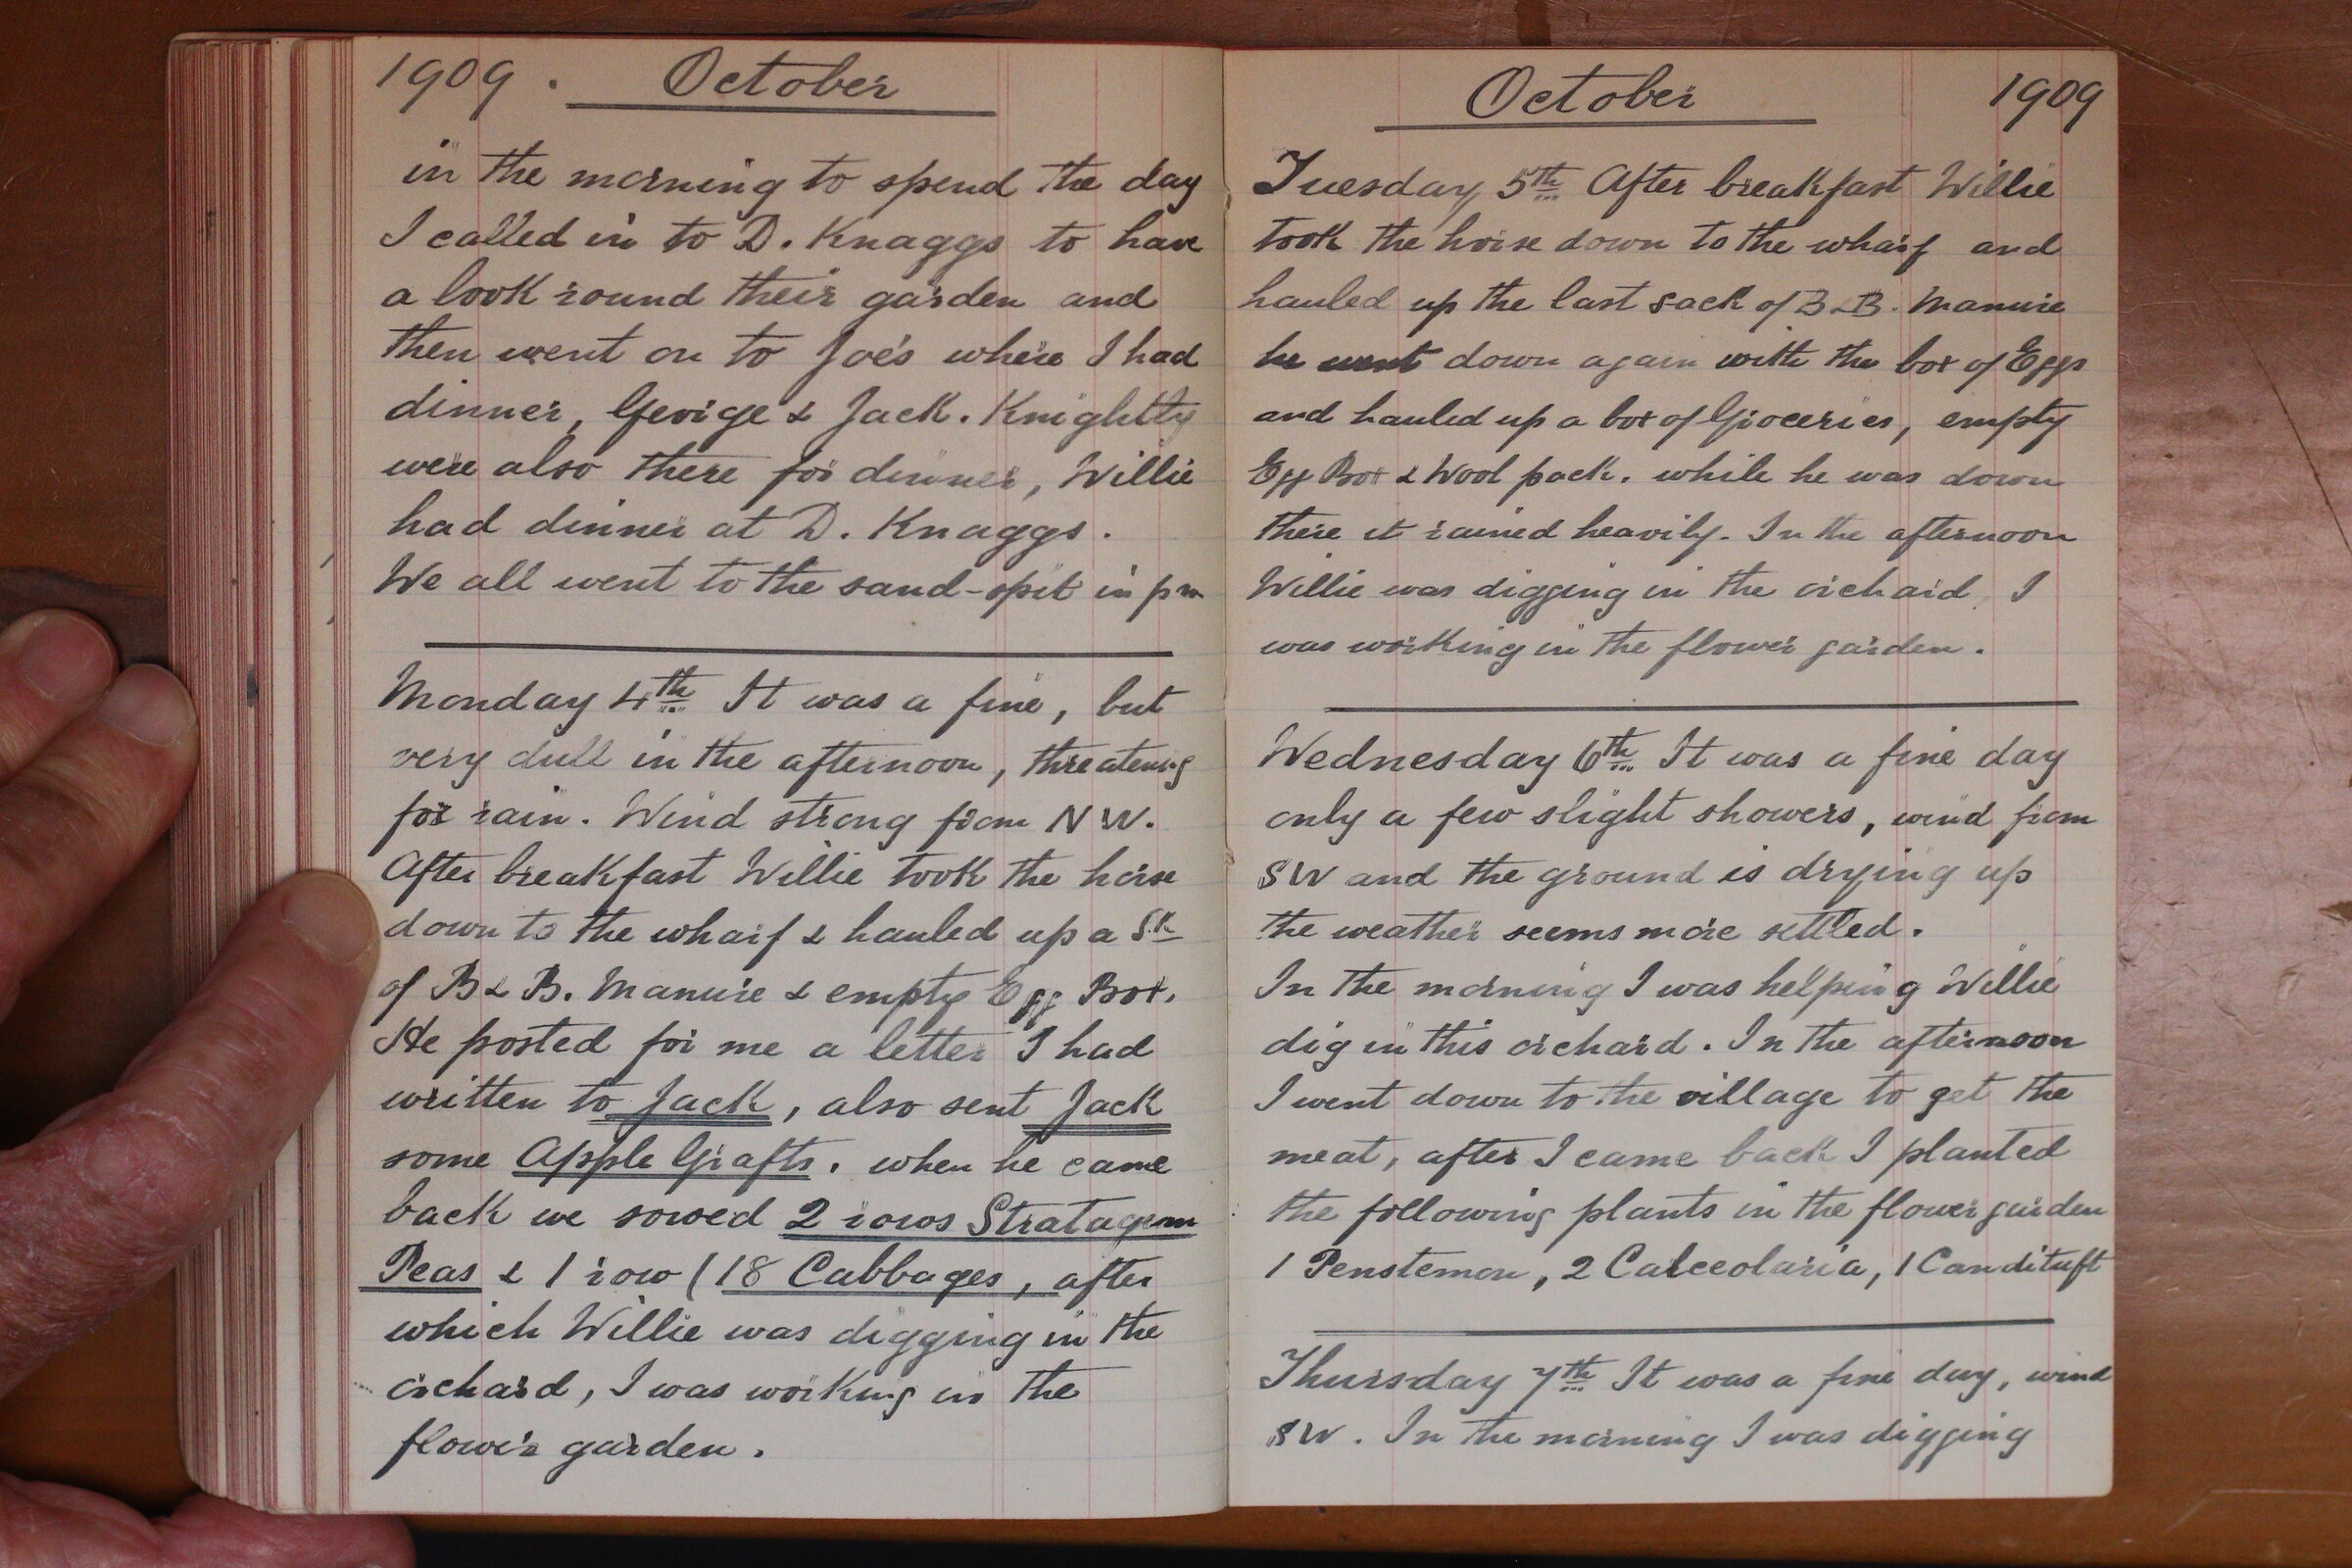 1909. October
in the morning to spend the day
I called in to D. Knaggs to have
a look round their garden and
then went on to Joe's where I had
dinner, George & Jack. Knightly
were also there for dinner, Willie
had dinner at D. Knaggs.
We all went to the sand-spit in pm
Monday 4th It was a fine, but
very dull in the afternoon, threatening
for rain. Wind strong from NW.
After breakfast Willie took the horse
down to the wharf & hauled up a Sk
of B & B. Manure & empty Egg Box.
He posted for me a letter I had
written to Jack, also sent Jack
some Apple Grafts. when he came
back we sowed 2 rows Stratagem
Peas & 1 row (18 Cabbages, after
which Willie was digging in the
orchard, I was working in the
flower garden.
October 1909
Tuesday 5th After breakfast Willie
took the horse down to the wharf and
hauled up the last sack of B & B. Manure
he went down again with the box of Eggs
and hauled up a box of Groceries, empty
Egg Box & Wool pack. while he was down
there it rained heavily. In the afternoon
Willie was digging in the orchard, I
was working in the flower garden.
Wednesday 6th It was a fine day
only a few slight showers, wind from
SW and the ground is drying up
the weather seems more settled.
In the morning I was helping Willie
dig in this orchard. In the afternoon
I went down to the village to get the
meat, after I came back I planted
the following plants in the flower garden
1 Penstemon, 2 Calceolaria, 1 Candituft
Thursday 7th It was a fine day, wind
SW. In the morning I was digging